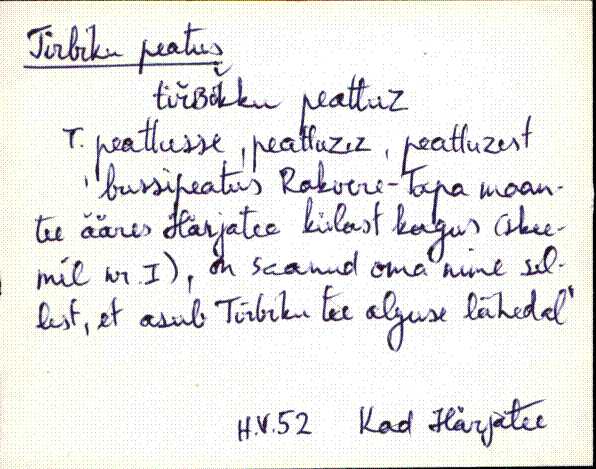 Tirbiku peatus
tiřBi̮kku peattuz
T. peattusse, peattuzez, peattuzest
'bussipeatus Rakvere-Tapa maan-
tee ääres Härjatee külast kagus (skee-
mil nr. I), on saanud oma nime sel-
lest, et asub Tirbiku tee alguse lähedal'
H.V.52 Kad Härjatee